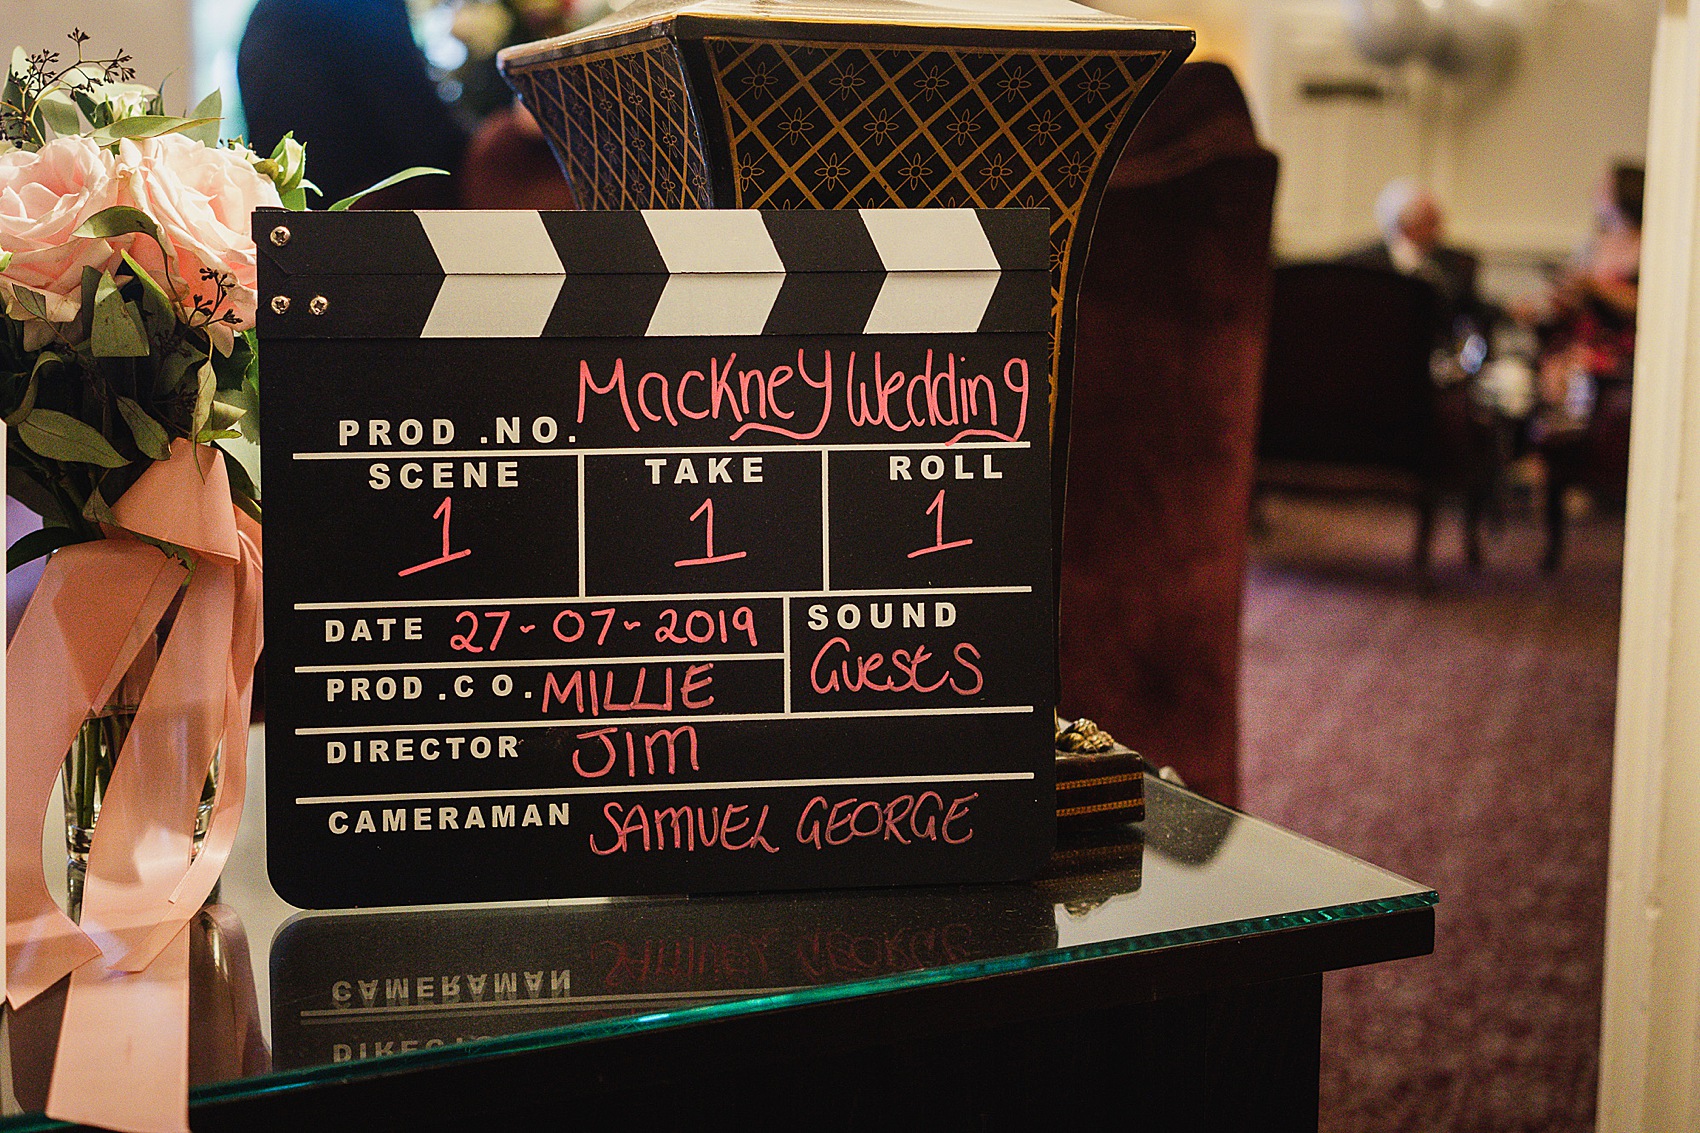 PROD .NO. Mackney Wedding
SCENE TAKE ROLL
1 1 1
DATE 27-07-2019 SOUND
Guests
PROD .CO. MILLIE
DIRECTOR JIM
CAMERAMAN SAMUEL GEORGE